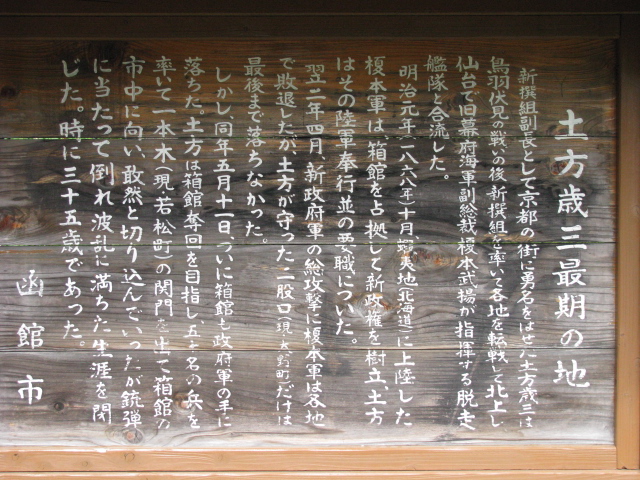 土方歳三最期の地
新撰組副長として京都の街に勇名をはせた土方歳三は
鳥羽伏見の戦いの後新撰組を率いて各地を転戦して北上し
仙台で旧幕府海軍副総裁榎本武揚が指揮する脱走
艦隊と合流した。
明治元年(一八六八年)十月、蝦夷地(北海道)に上陸した
榎本軍は、箱館を占拠して新政権を樹立、土方
はその陸軍奉行並の要職についた。
翌二年四月、新政府軍の総攻撃に榎本軍は各地
で敗退したが、土方が守った二股口(現、大野町)だけは
最後まで落ちなかった。
しかし、同年五月十一日、ついに箱館も政府軍の手に
落ちた。土方は箱館奪回を目指し、五十名の兵を
率いて一本木(現若松町)の関門を出て箱館の
市中に向い、敢然と切り込んでいったが銃弾
に当たって倒れ波乱に満ちた生涯を閉
じた。時に三十五歳であった。
函館市